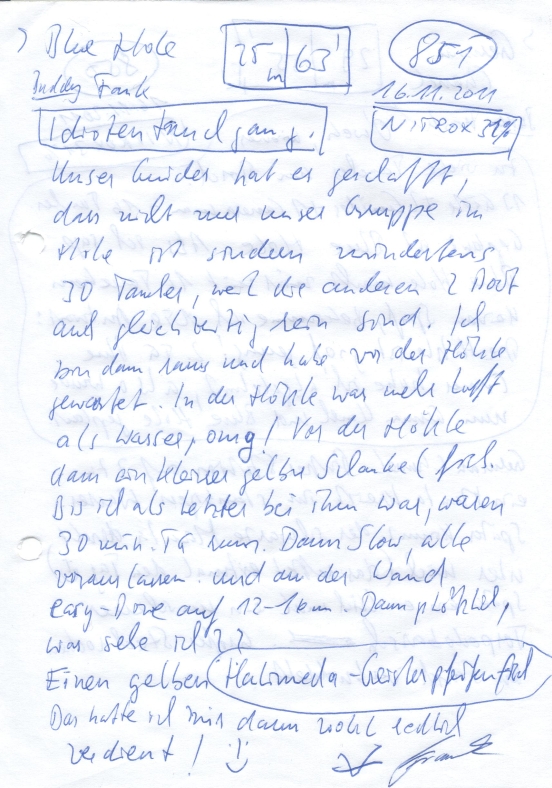 Blue Hole
25 m 63'
851
Buddy Frank
16.11.2011
Idiotentauchgang.
NITROX 32%
Unser Guides hat es geschafft,
das nicht nur unser Gruppe im
Hole ist sondern mindestens
30 Taucher, weil die anderen 2 Boot
auch gleichzeitig rein sind. Ich
bin dann raus und habe vor der Höhle
gewartet. In der Höhle war mehr Luft
als Wasser, omg! Vor der Höhle
dann ein kleiner gelber Schaukelfisch.
Bis ich als letzter bei ihm war, waren
30 min. TG rum. Dann Slow, alle
voraus lassen und an der Wand
easy-Dive auf 12-16m. Dann plötzlich,
was sehe ich??
Einen gelben Halimeda-Geisterpfeifenfisch
Das hatte ich mir dann wohl redlich
verdient!
Frank